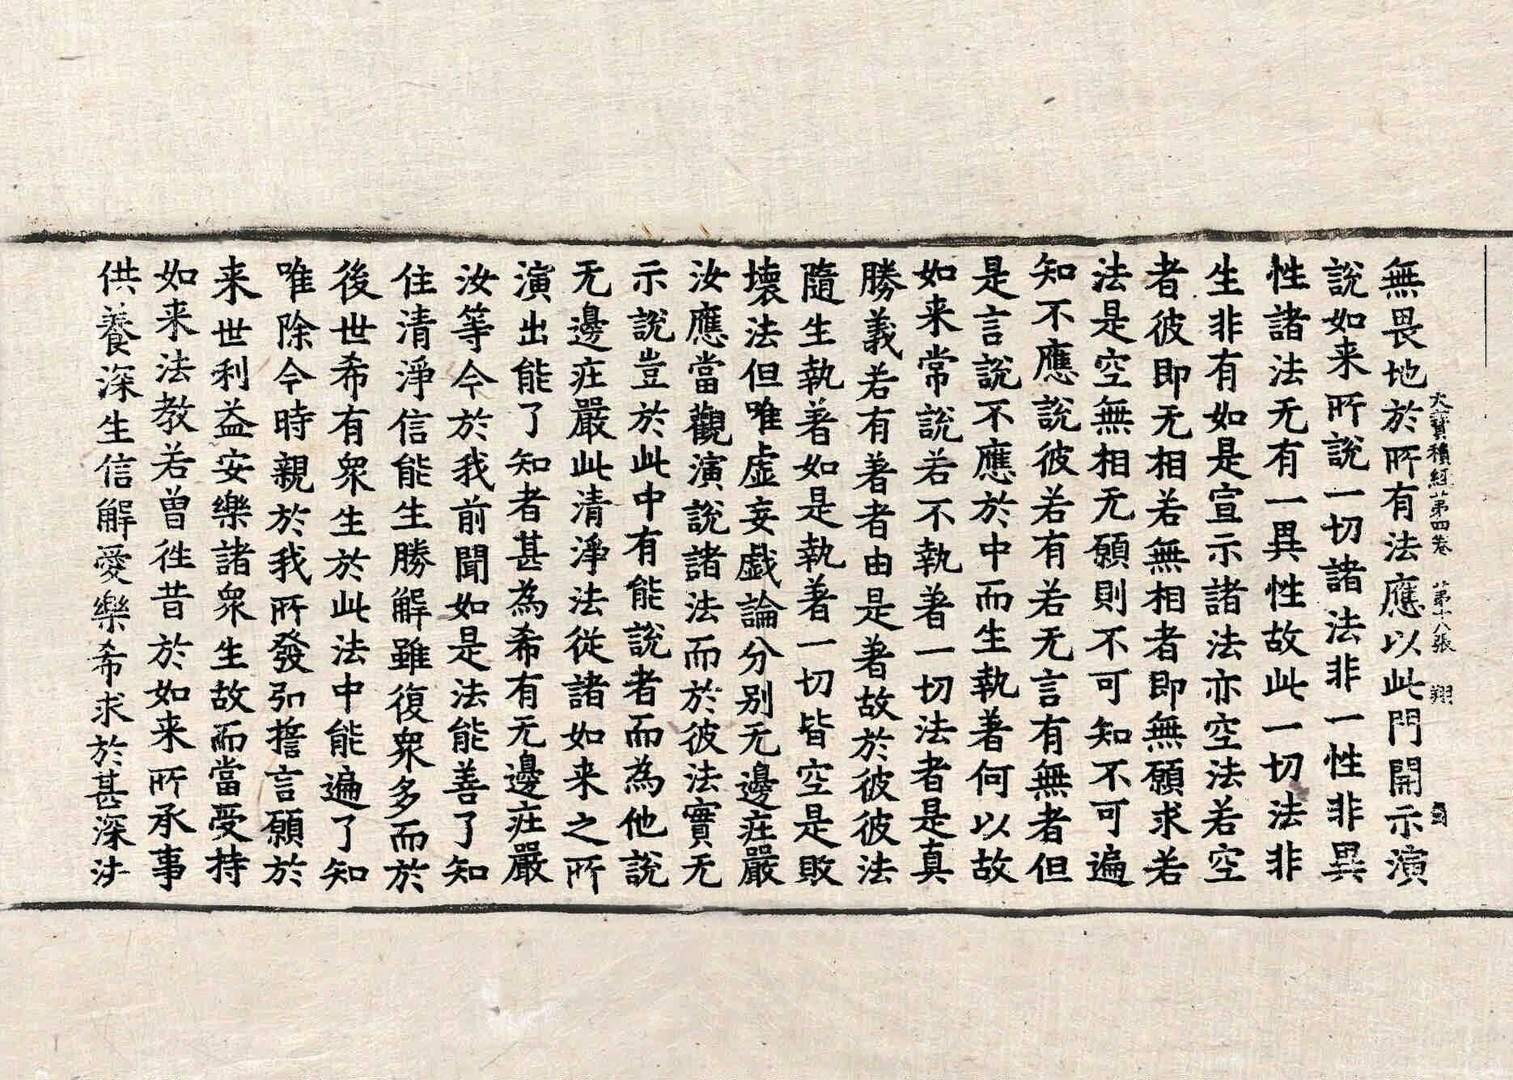 大寶積經第四卷 第十八張 翔
無畏地於所有法應以此門開示演
說如来所說一切諸法非一性非異
性諸法无有一異性故此一切法非
生非有如是宣示諸法亦空法若空
者彼即无相若無相者即無願求若
法是空無相无願則不可知不可遍
知不應說彼若有若无言有無者但
是言說不應於中而生執著何以故
如来常說若不執著一切法者是真
勝義若有著者由是著故於彼彼法
隨生執著如是執著一切皆空是敗
壞法但唯虛妄戲論分别无邊莊嚴
汝應當觀演說諸法而於彼法實无
示說豈於此中有能說者而為他說
无邊莊嚴此清淨法從諸如来之所
演出能了知者甚為希有无邊莊嚴
汝等今於我前聞如是法能善了知
住清淨信能生勝解雖復衆多而於
後世希有衆生於此法中能遍了知
唯除今時親於我所發弘誓言願於
来世利益安樂諸衆生故而當受持
如来法教若曾往昔於如来所承事
供養深生信解愛樂希求於甚深法